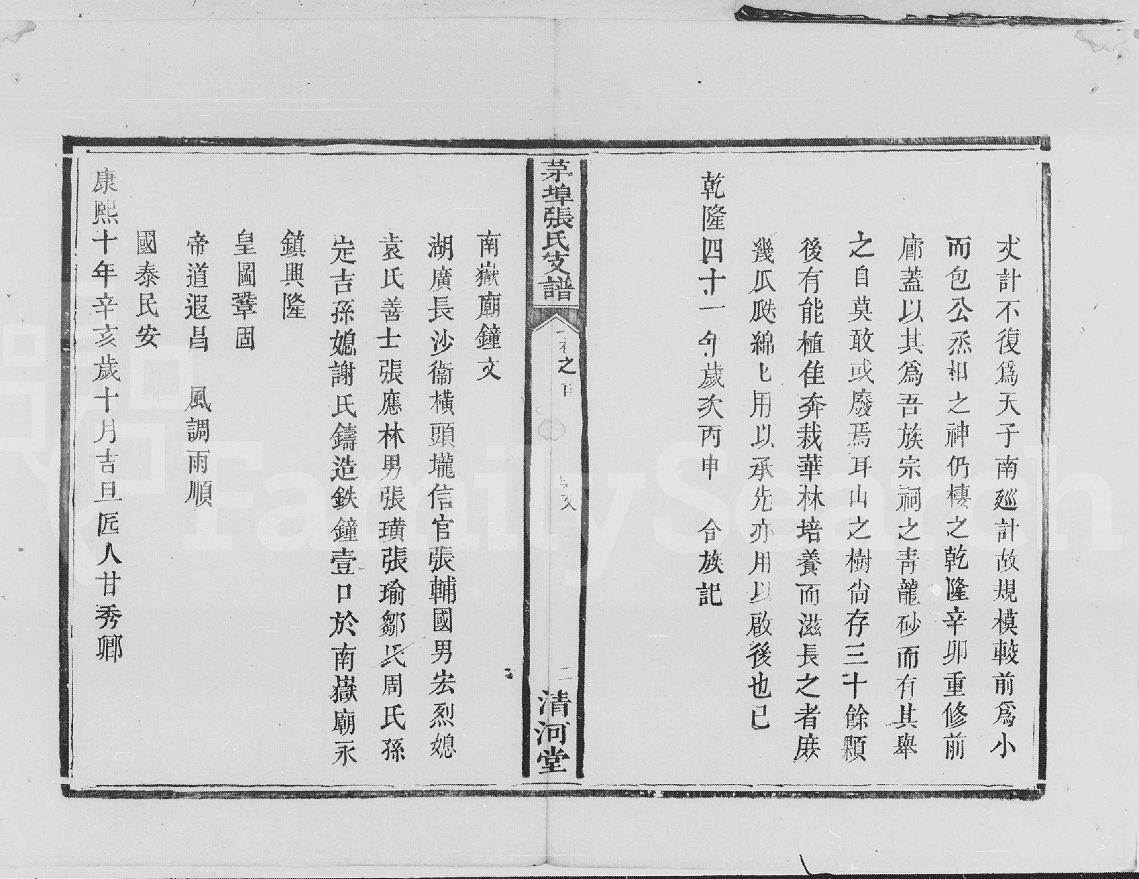 丈計不復爲天子南廵計故規模較前爲小
而包公丞相之神仍棲之乾隆辛卯重修前
廊蓋以其爲吾族宗祠之青龍砂而有其舉
之自莫敢或廢焉耳山之樹尙存三十餘顆
後有能植佳奔栽華林培養而滋長之者庶
幾瓜瓞綿匕用以承先亦用以啟後也已
乾隆四十一年歲次丙申 合族記
茅埠張氏支譜
卷之首
二
清河堂
南嶽廟鐘文
湖廣長沙衞橫頭壠信官張輔國男宏烈媳
袁氏善士張應林男張璜張瑜鄒氏周氏孫
定吉孫媳謝氏鑄造鉄鐘壹口於南嶽廟永
鎮興隆
皇圖鞏固
帝道遐昌 風調雨順
國泰民安
康熙十年辛亥歲十月吉旦匠人甘秀卿
FamilySearch